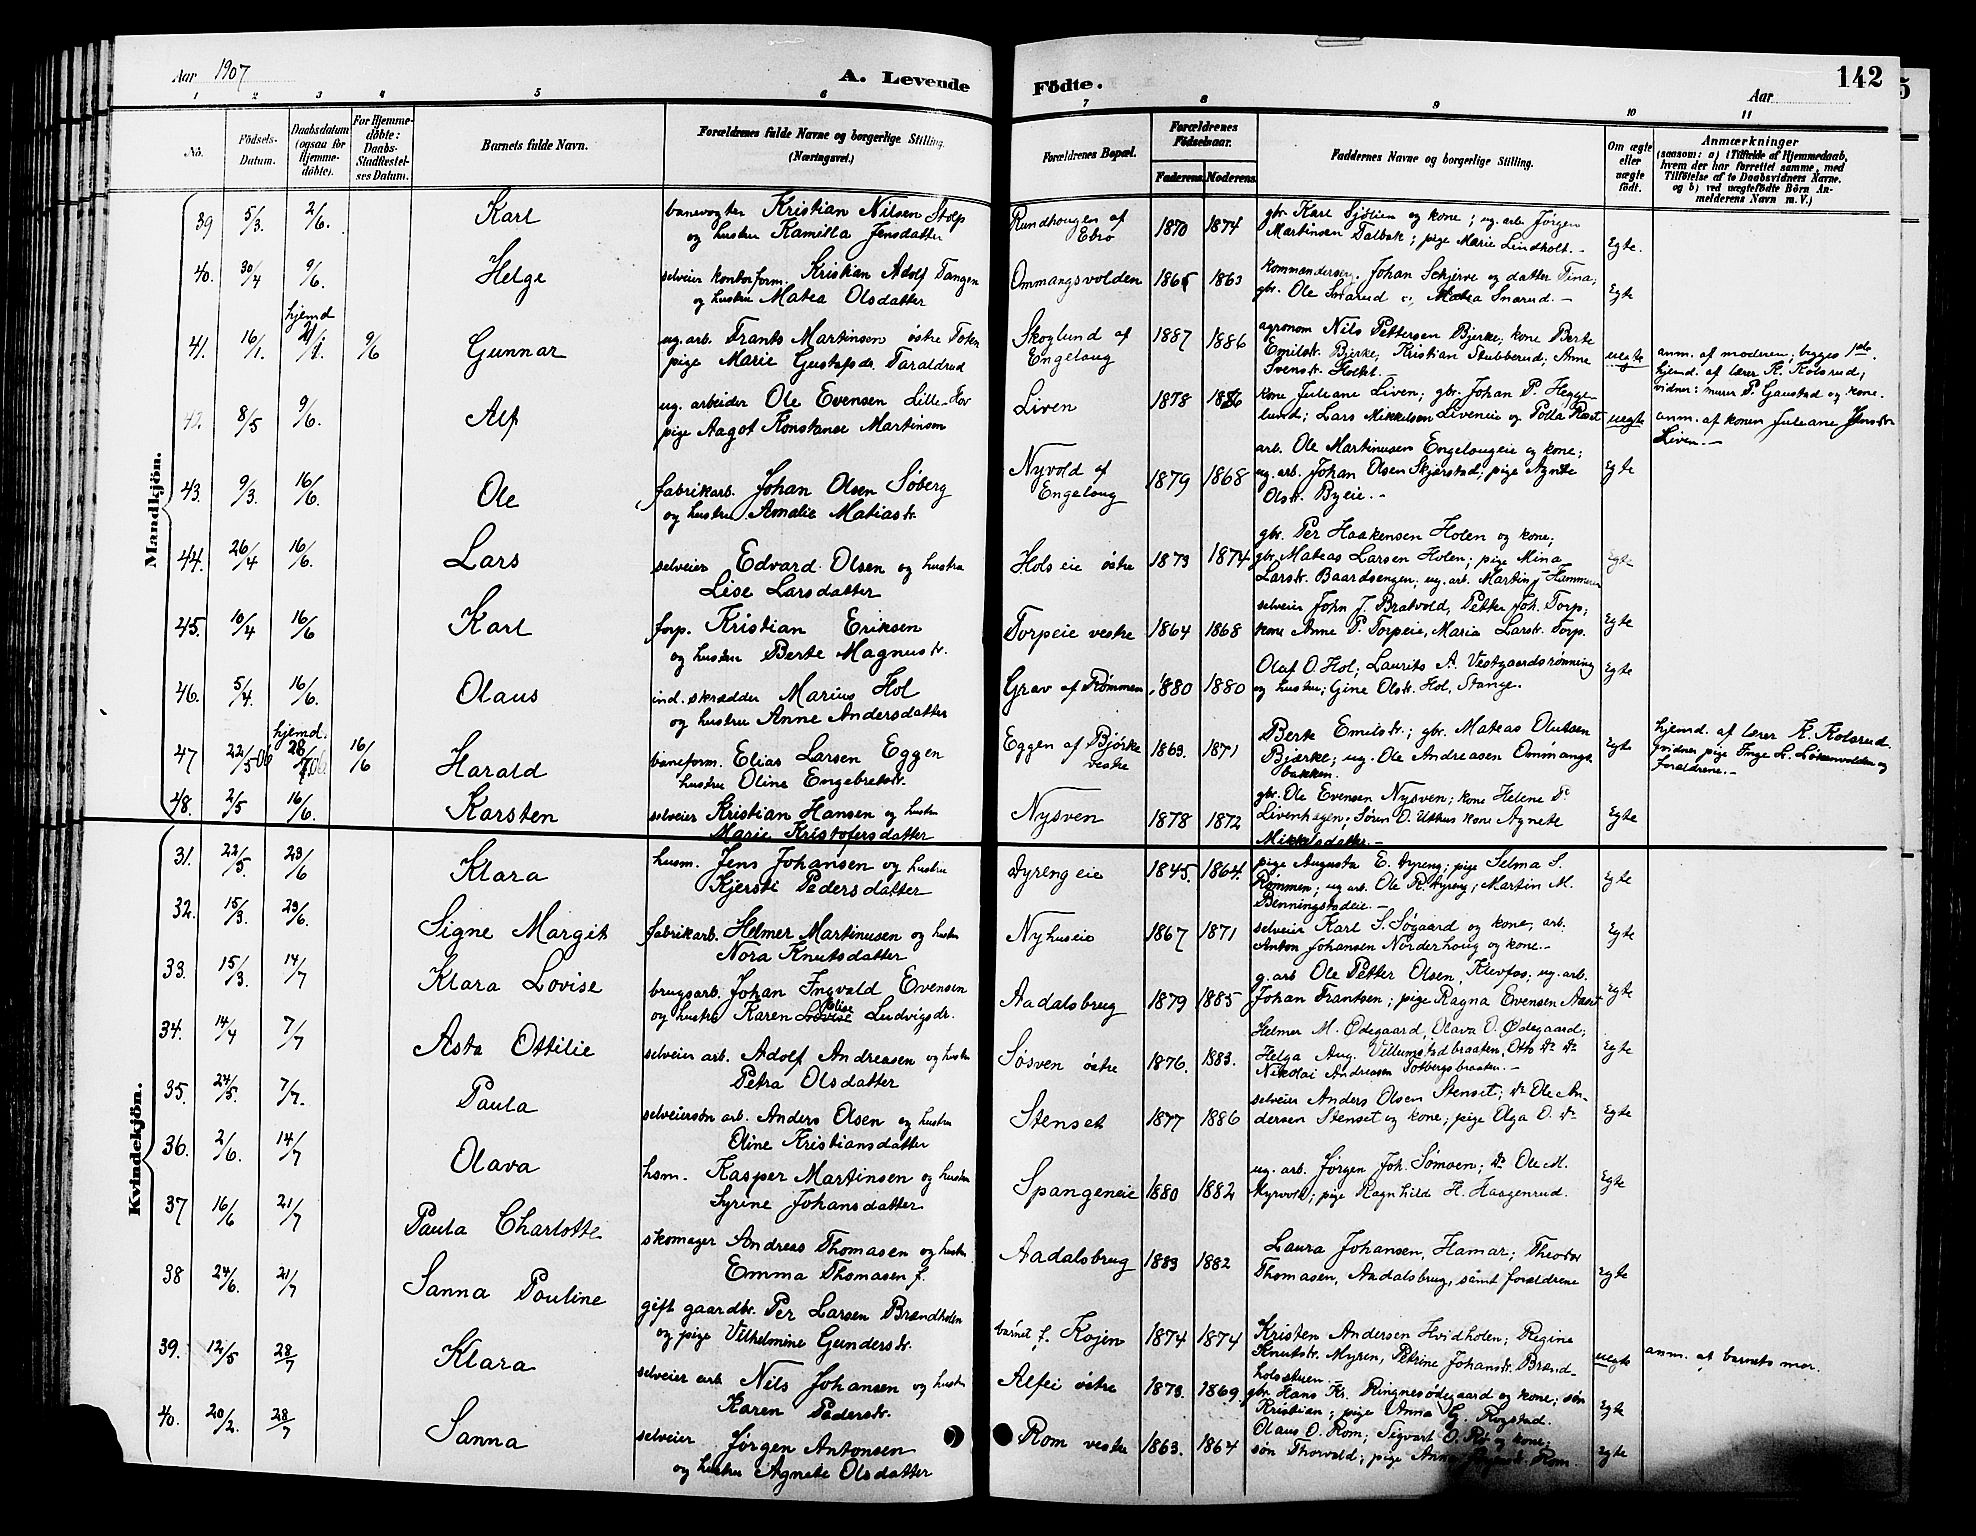 Aar 1907
A. Levende
Födte.
142
Aar
5
1 2 3 4 5 6
7 8 9 10 11
No.
Födsels-
Datum.
Daabsdatum
(ogsaa för
Hjemme-
döbte).
For Hjemme-
döbte:
Daabs-
Stadfæstel-
ses Datum.
Barnets fulde Navn.
Forældrenes fulde Navne og borgerlige Stilling.
(Næringsvei.)
Forældrenes Bopæl.
Forældrenes
Födselsaar.
Faderens. Moderens.
Faddernes Navne og borgerlige Stilling.
Om ægte
eller
uægte
födt.
Anmærkninger
(saasom: a) i Tilfælde af Hjemmedaab,
hvem der har forrettet samme, med
Tilföielse af to Daabsvidners Navne.
og b) ved uægtefödte Börn An-
melderens Navn m.V.)
Mandkjön.
39 5/3. 2/6. Karl
banevogter Kristian Nilsen Stolp
og hustru Kamilla Jensdatter
Rundhougen af
Ebro
1870 1874
gbr. Karl Sjölien og kone; ug. arb. Jørgen
Martinsen Talbak; pige Marie Lindholt.-
Egte.
40. 30/4 9/6. Helge
selveier kontorform. Kristian Adolf Tangen
og hustru Matea Olsdatter
Ommangsvolden
1865 1863
Johan Schjerve og datter Tina;
gbr. Ole Snarud og Matea Snarud.-
Egte
hjemd
41. 16/1. 21/1. 9/6 Gunnar
ug. arb. Frants Martinsen östre Toten
pige Marie Gustafsdr. Taraldrud
Skoglund af
Engelaug
1887 1886
agronom Nils Pettersen Bjerke; kone Berte
Emilsdr. Bjerke; Kristian Stubberud; Anne
Svensdr. Holket.-
uegte
anm. af moderen; begges 1ste.
hjemd. af lærer K. Kolsrud;
vidner: murer P. Gaustad og kone.
42. 8/5 9/6. Alf
ug. arbeider Ole Evensen Lille-Hov
pige Aagot Konstanse Martinsen
Liven
1878 1886
kone Juliane Liven; gbr. Johan P. Hegge-
lund; Lars Mikkelsen Liveneie og Tolla Røst
uegte
anm. af konen Juliane Jensdr
Liven.-
43. 9/3. 16/6. Ole
fabrikarb. Johan Olsen Söberg
og hustru Amalie Matiasdr.
Nyvold af
Engelaug
1879 1868
arb. Ole Martinusen Engelaugeie og kone;
ug. arb. Johan Olsen Skjerstad; pige Agnte
Olsdr. Byeie.-
Egte
44. 26/4 16/6. Lars
selveier Edvard Olsen og hustru
Lise Larsdatter
Hols eie östre
1873 1874
gbr. Per Haakensen Holen og kone;
gbr. Mateas Larsen Holen; pige Mina
Larsdr. Baardsengen; ug. arb. Martin J. Hammeren
Egte
45. 10/4 16/6 Karl
forp. Kristian Eriksen
og hustru Berte Magnusdr.
Torpeie vestre
1864 1868
selveier John J. Bratvold, Petter Joh. Torp;
kone Anne P. Torpeie, Maria Larsdr. Torp.
Egte
46. 5/4. 16/6. Olaus
ind. skrædder Marius Hol
og hustru Anne Andersdatter
Grav af Rømmen
1880 1880
Olaf O. Hol; Laurits A. Vestgaardsrønning
og hustru; Gine Olsdr. Hol, Stange.
Egte
hjemd.
47 22/5 06 28/7 06 16/6 Harald
baneform. Elias Larsen Eggen
hustru Oline Engebretsdr.
Eggen af Bjørke
vestre
1863. 1871
Berte Emilsdr.; gbr. Mateas Olausen
Bjørke; ug. Ole Andreasen Ommangs-
bakken.
Egte
hjemd. af lærer K. Kolsrud
vidner pige Inge L. Lökenvolden og
forældrene.-
48. 2/5 16/6. Karsten
selveier Kristian Hansen og hustru
Marie Kristofersdatter
Nysven
1878 1872
gbr. Ole Evensen Nysven; kone Helene P.
Livenhagen; Søren O. Uthus kone Agnete
Mikkelsdatter.-
Egte
Kvindekjön.
31. 22/5. 23/6 Klara
husm. Jens Johansen og hustru
Kjersti Pedersdatter
Dyreng eie
1845. 1864.
pige Augusta E. Dyreng; pige Selma S.
Rømmen; ug. arb. Ole R. Dyreng; Martin M.
Benningstadeie.-
Egte
32. 15/3. 23/6. Signe Margit
fabrikarb. Helmer Martinusen og hustru
Nora Knutsdatter
Nyhuseie
1867 1871
selveier Karl S. Søgaard og kone, arb.
Anton Johansen Norderhoug og kone.-
Egte
33. 15/3. 14/7 Klara Lovise
brugsarb. Johan Ingvald Evensen
og hustru Karen Lovise Ludvigsdr.
Aadalsbrug
1879 1885
g. arb Ole Petter Olsen, Klevfos; ug. arb.
Johan Frantsen; pige Ragna Evensen Aast
Egte
34. 14/4 7/7 Asta Ottilie
selveier arb. Adolf Andreasen og hustru
Petra Olsdatter
Søsven östre
1876. 1883.
Helmer M. Ødegaard, Olava O. Ødegaard;
Helga Aug. Villumstadbraaten, Otto Do. Do.
Nikolai Andreasen Totbergsbraaten.-
Egte
35. 24/5. 7/7. Paula
selveiersøn arb. Anders Olsen og hustru
Oline Kristiansdatter
Stenset
1877 1886
selveier Anders Olsen Stenset; Do. Ole An-
dersen Stenset og kone; pige Olga O. Do.
Egte
36. 2/6. 14/7 Olava
hsm. Kasper Martinsen og hustru
Syrine Johansdatter
Spangeneie
1880 1882
ug. arb. Jørgen Joh. Sømoen; Do. Ole M.
Myrvold; pige Ragnhild H. Haagenrud.
Egte
37 16/6 21/7 Paula Charlotte
skomager Andreas Thomasen og hustru
Emma Thomasen f.
Aadalsbrug
1883 1882
Laura Johansen, Hamar; Theodor
Thomasen, Aadalsbrug, samt forældrene
Egte
38 24/6. 21/7 Sanna Pouline
gift gaardbr. Per Larsen Brændholen
og pige Vilhelmine Gundersdr.
barnet f. Kojen
1874 1874
Kristen Andersen Hvidholen; Regine
Knutsdr. Myren, Petrine Johansdr. Brænd-
holsstuen.-
uegte
anm. af barnets mor.
39. 12/5 28/7 Klara
selveier arb. Nils Johansen og hustru
Karen Pedersdr.
Alfei östre
1873. 1869
gbr. Hans Kr. Ringnesødegaard og kone; søn
Kristian; pige Anna G. Rogstad.
Egte
40. 20/2. 28/7 Sanna
selveier Jørgen Antonsen
og hustru Agnete Olsdatter
Rom vestre
1863. 1864
Olaus O. Rom; Sigvart O. Rø og kone;
søn Thorvald; pige Anna Rom.
Egte